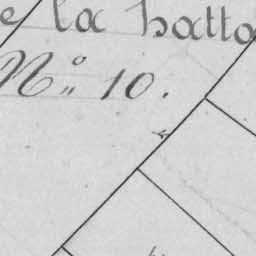 e la hatto
N° 10.